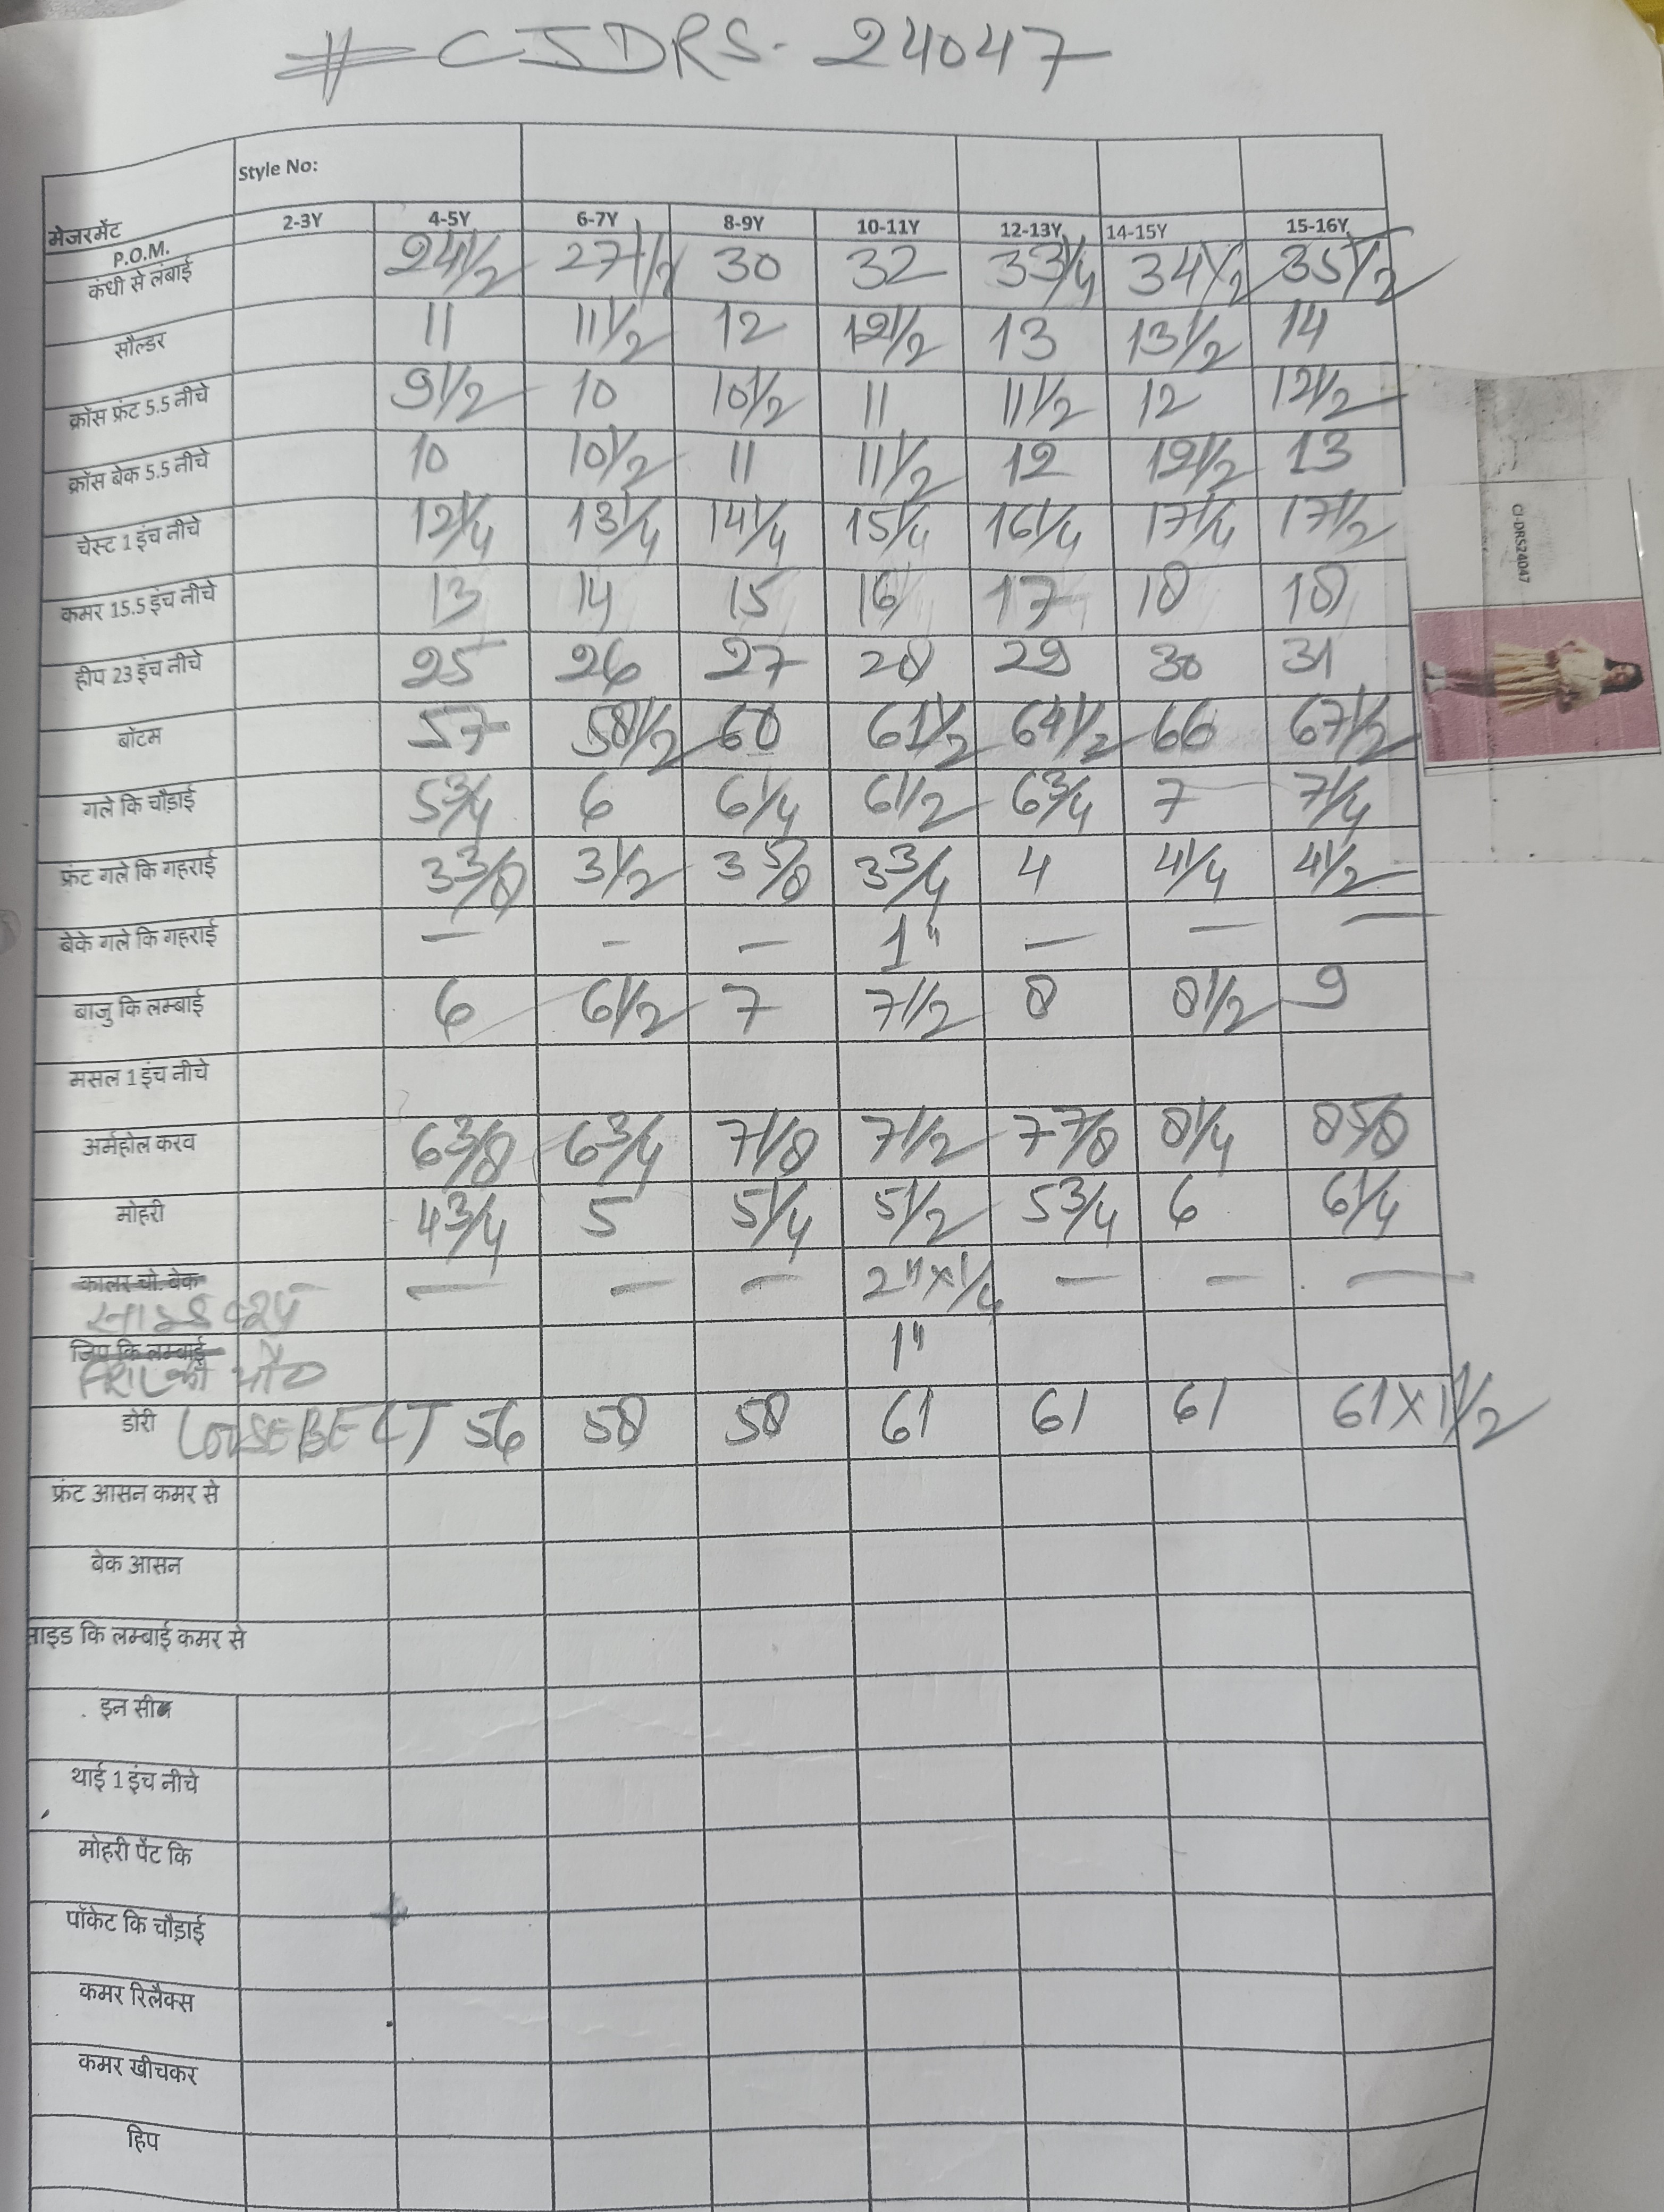 # CJDRS-24047
Style No:
मेजरमेंट P.O.M. 2-3Y 4-5Y 6-7Y 8-9Y 10-11Y 12-13Y 14-15Y 15-16Y
कंधी से लंबाई 24 1/2 27 1/2 30 32 33 1/4 34 1/2 35 1/2
सौल्डर 11 11 1/2 12 12 1/2 13 13 1/2 14
क्रॉस फ्रंट 5.5 नीचे 9 1/2 10 10 1/2 11 11 1/2 12 12 1/2
क्रॉस बेक 5.5 नीचे 10 10 1/2 11 11 1/2 12 12 1/2 13
चेस्ट 1 इंच नीचे 12 1/4 13 1/4 14 1/4 15 1/4 16 1/4 17 1/4 17 1/2
कमर 15.5 इंच नीचे 13 14 15 16 17 18 18
हीप 23 इंच नीचे 25 26 27 28 29 30 31
बॉटम 57 58 1/2 60 61 1/2 64 1/2 66 67 1/2
गले कि चौड़ाई 5 3/4 6 6 1/4 6 1/2 6 3/4 7 7 1/4
फ्रंट गले कि गहराई 3 3/8 3 1/2 3 5/8 3 3/4 4 4 1/4 4 1/2
बेके गले कि गहराई — — — 1" — — —
बाजु कि लम्बाई 6 6 1/2 7 7 1/2 8 8 1/2 9
मसल 1 इंच नीचे
अर्महोल करव 6 3/8 6 3/4 7 1/8 7 1/2 7 7/8 8 1/4 8 5/8
मोहरी 4 3/4 5 5 1/4 5 1/2 5 3/4 6 6 1/4
कालर चो. बेक — — — 2"x1/4 — — —
साइड
जिप कि लम्बाई 1"
FRIL की
डोरी LOOSE BELT 56 58 58 61 61 61 61 x 1 1/2
फ्रंट आसन कमर से
बेक आसन
साइड कि लम्बाई कमर से
. इन सीम
थाई 1 इंच नीचे
मोहरी पेंट कि
पॉकेट कि चौड़ाई
कमर रिलैक्स
कमर खीचकर
हिप
CI-DRS24047